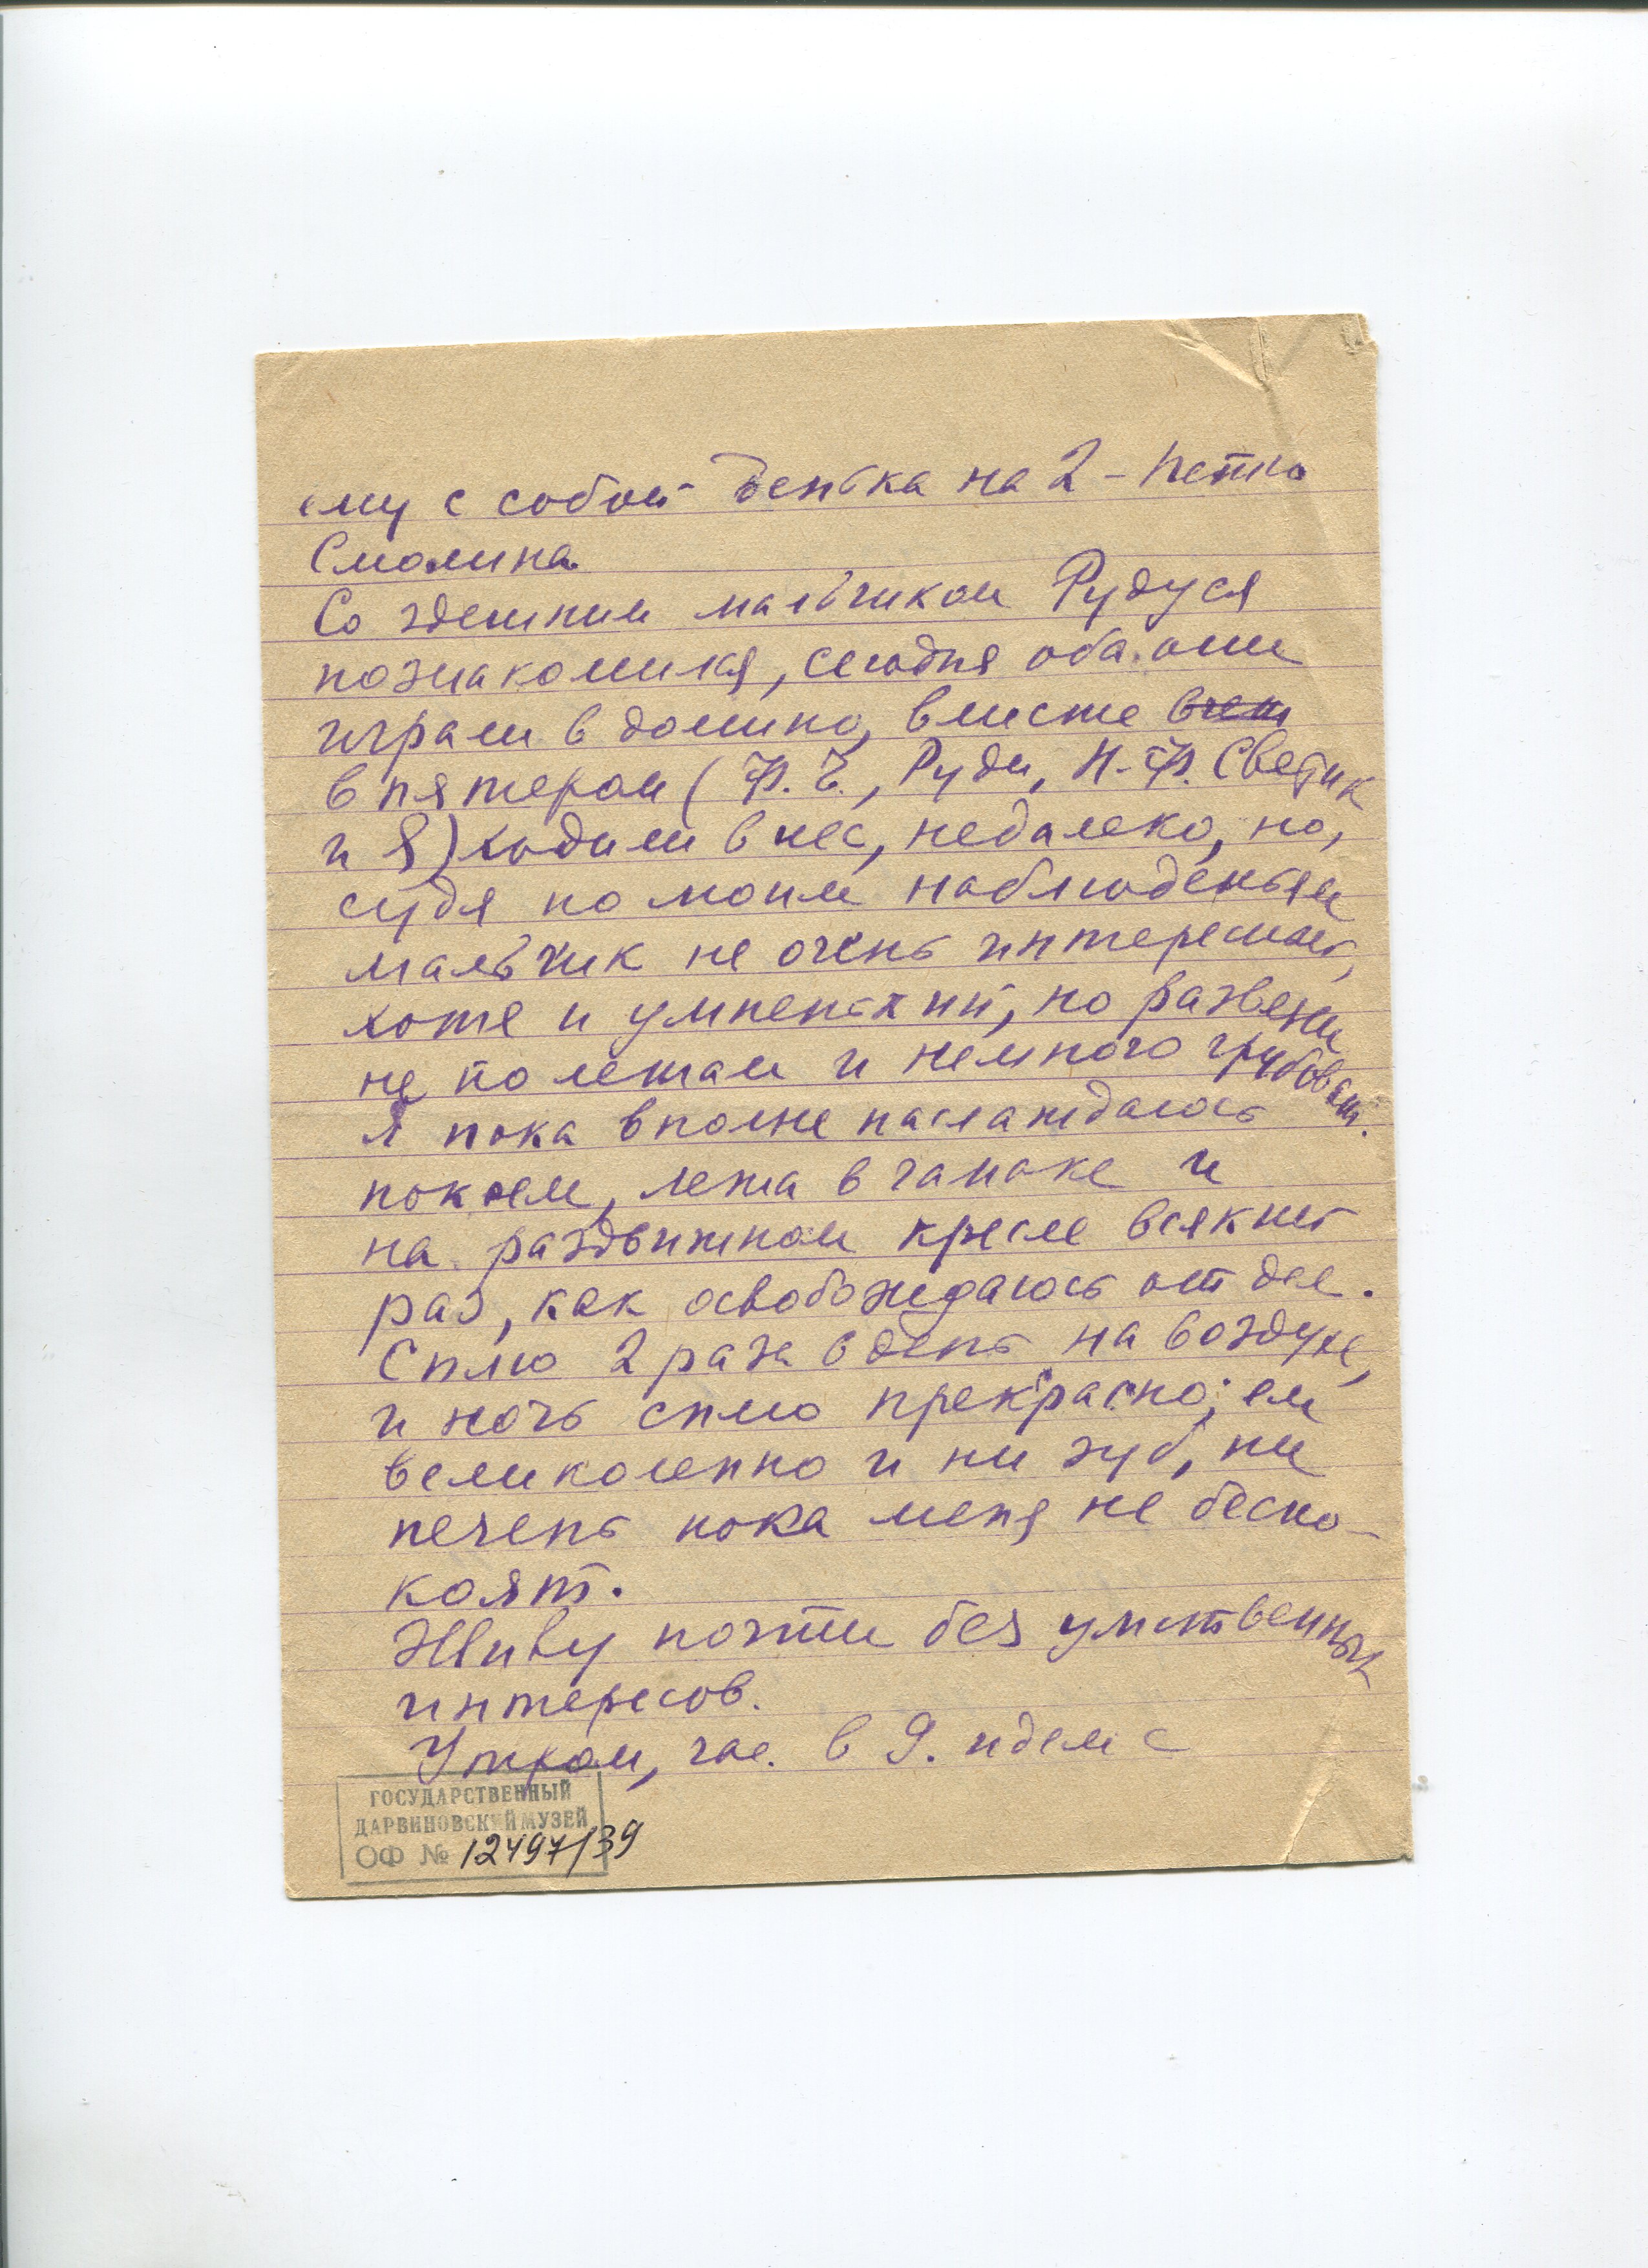 ему с собой денька на 2 - Петю
Смолина
Со здешним мальчиком Рудуся
познакомился, сегодня оба они
играли в домино, вместе
в пятером (Ф. Е., Руди, Н. Ф. Светик
и Я) ходили в лес, недалеко, но,
судя по моим наблюденьям
мальчик не очень интересный,
хотя и умненький, но развязен
не по летам и немного грубоват.
Я пока вполне наслаждаюсь
покоем, лежа в гамаке и
на раздвижном кресле всякий
раз, как освобождаюсь от дел.
Сплю 2 раза в день на воздухе,
и ночь сплю прекрасно; ем
великолепно и ни зуб, ни
печень пока меня не беспо-
коят.
Живу почти без умственных
интересов.
Утром, час. в 9. идем с
ГОСУДАРСТВЕННЫЙ
ДАРВИНОВСКИЙ МУЗЕЙ
ОФ № 12497/39